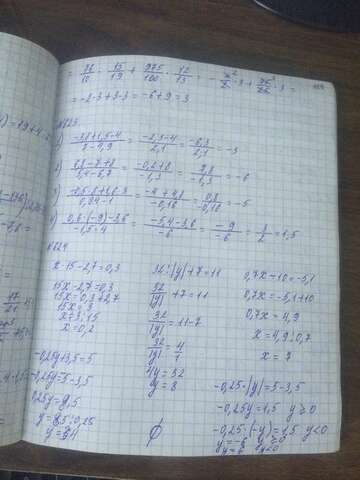 = -38/10 · 15/19 + 975/100 · 12/13 = - x²/2 · 3 + 75/25 · 3 =
= -2·3+3·3 = -6+9 = 3
№823
1) -3,8+1,5-4 / 7-4,9 = -2,3-4 / 2,1 = -6,3 / 2,1 = -3
2) 6,8-7+8 / 5,4-6,7 = -0,2+8 / -1,3 = 7,8 / -1,3 = -6
3) -0,5·8+1,6·3 / 0,84-1 = -4+4,8 / -0,16 = 0,8 / -0,16 = -5
4) 0,6·(-9)-3,6 / -1,5·4 = -5,4-3,6 / -6 = -9 / -6 = 3/2 = 1,5
№824
x·15-2,7=0,3
15x-2,7=0,3
15x=0,3+2,7
15x=3
x=3:15
x=0,2
32:|y|+7=11
32/|y|+7=11
32/|y|=11-7
32/|y|=4/1
4y=32
y=8
0,7x-10=-5,1
0,7x=-5,1+10
0,7x=4,9
x=4,9:0,7
x=7
-0,25y+3,5=5
-0,25y=5-3,5
∅
-0,25·|y|=5-3,5
-0,25y=1,5 y≥0
-0,25·(-y)=1,5 y<0
y=-6 y≥0
y=6 y<0